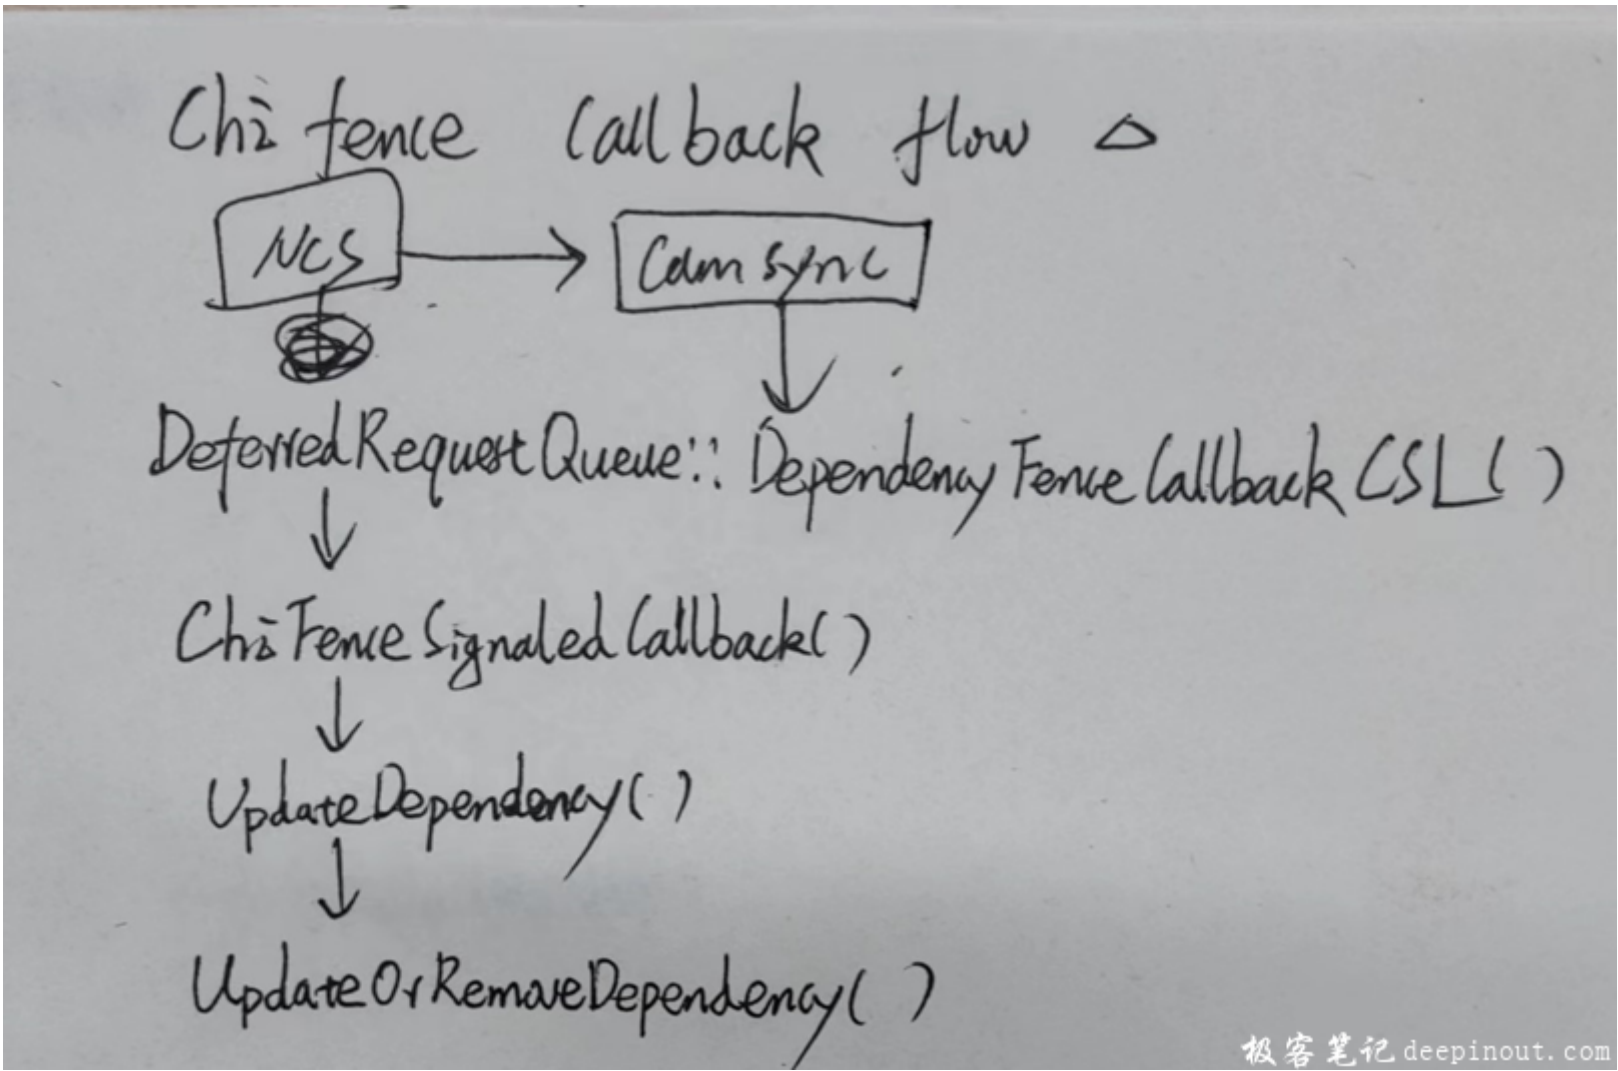 Chi fence Callback flow △
NCS
Camsync
DeferredRequestQueue::DependencyFenceCallbackCSL()
ChiFenceSignaledCallback()
UpdateDependency()
UpdateOrRemoveDependency()
极客笔记deepinout.com